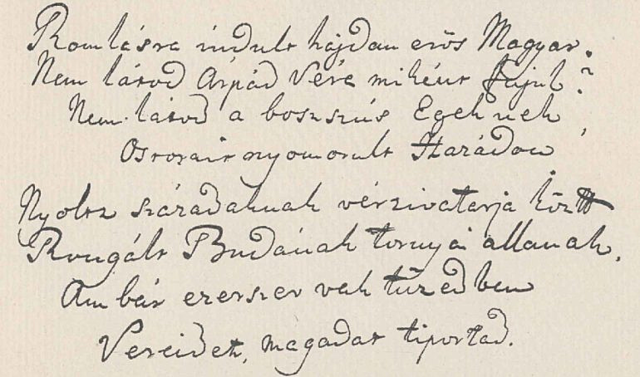 Romlásra indult hajdan erős Magyar.
Nem látod Árpád Vére miként fajul?
Nem látod a boszszús Egeknek
Ostorait nyomorult Hazádon
Nyoltz századaknak vérzivatarja köztt
Rongált Budának tornyai állanak,
Ámbár ezerszer vak tüzedben
Véreidet, magadat tiportad.